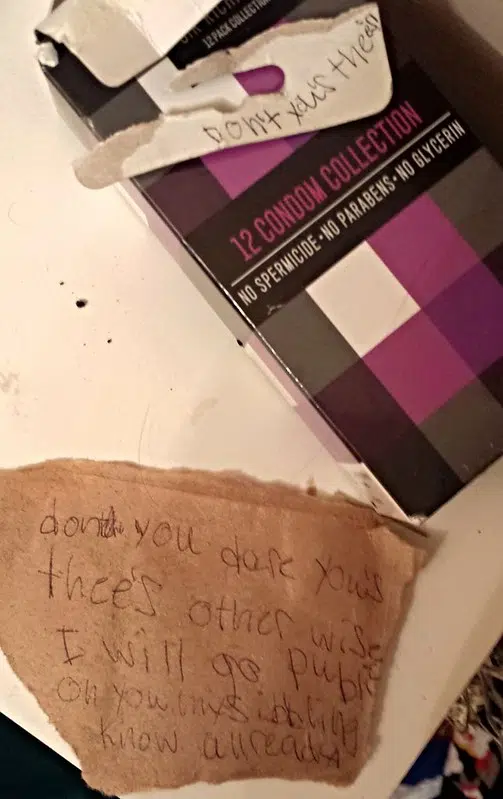 12 PACK COLLECTION
Don't you's thees
12 CONDOM COLLECTION
NO SPERMICIDE • NO PARABENS • NO GLYCERIN
dont you dare you's
thee's other wise
I will go public
on you my sibling
know allready